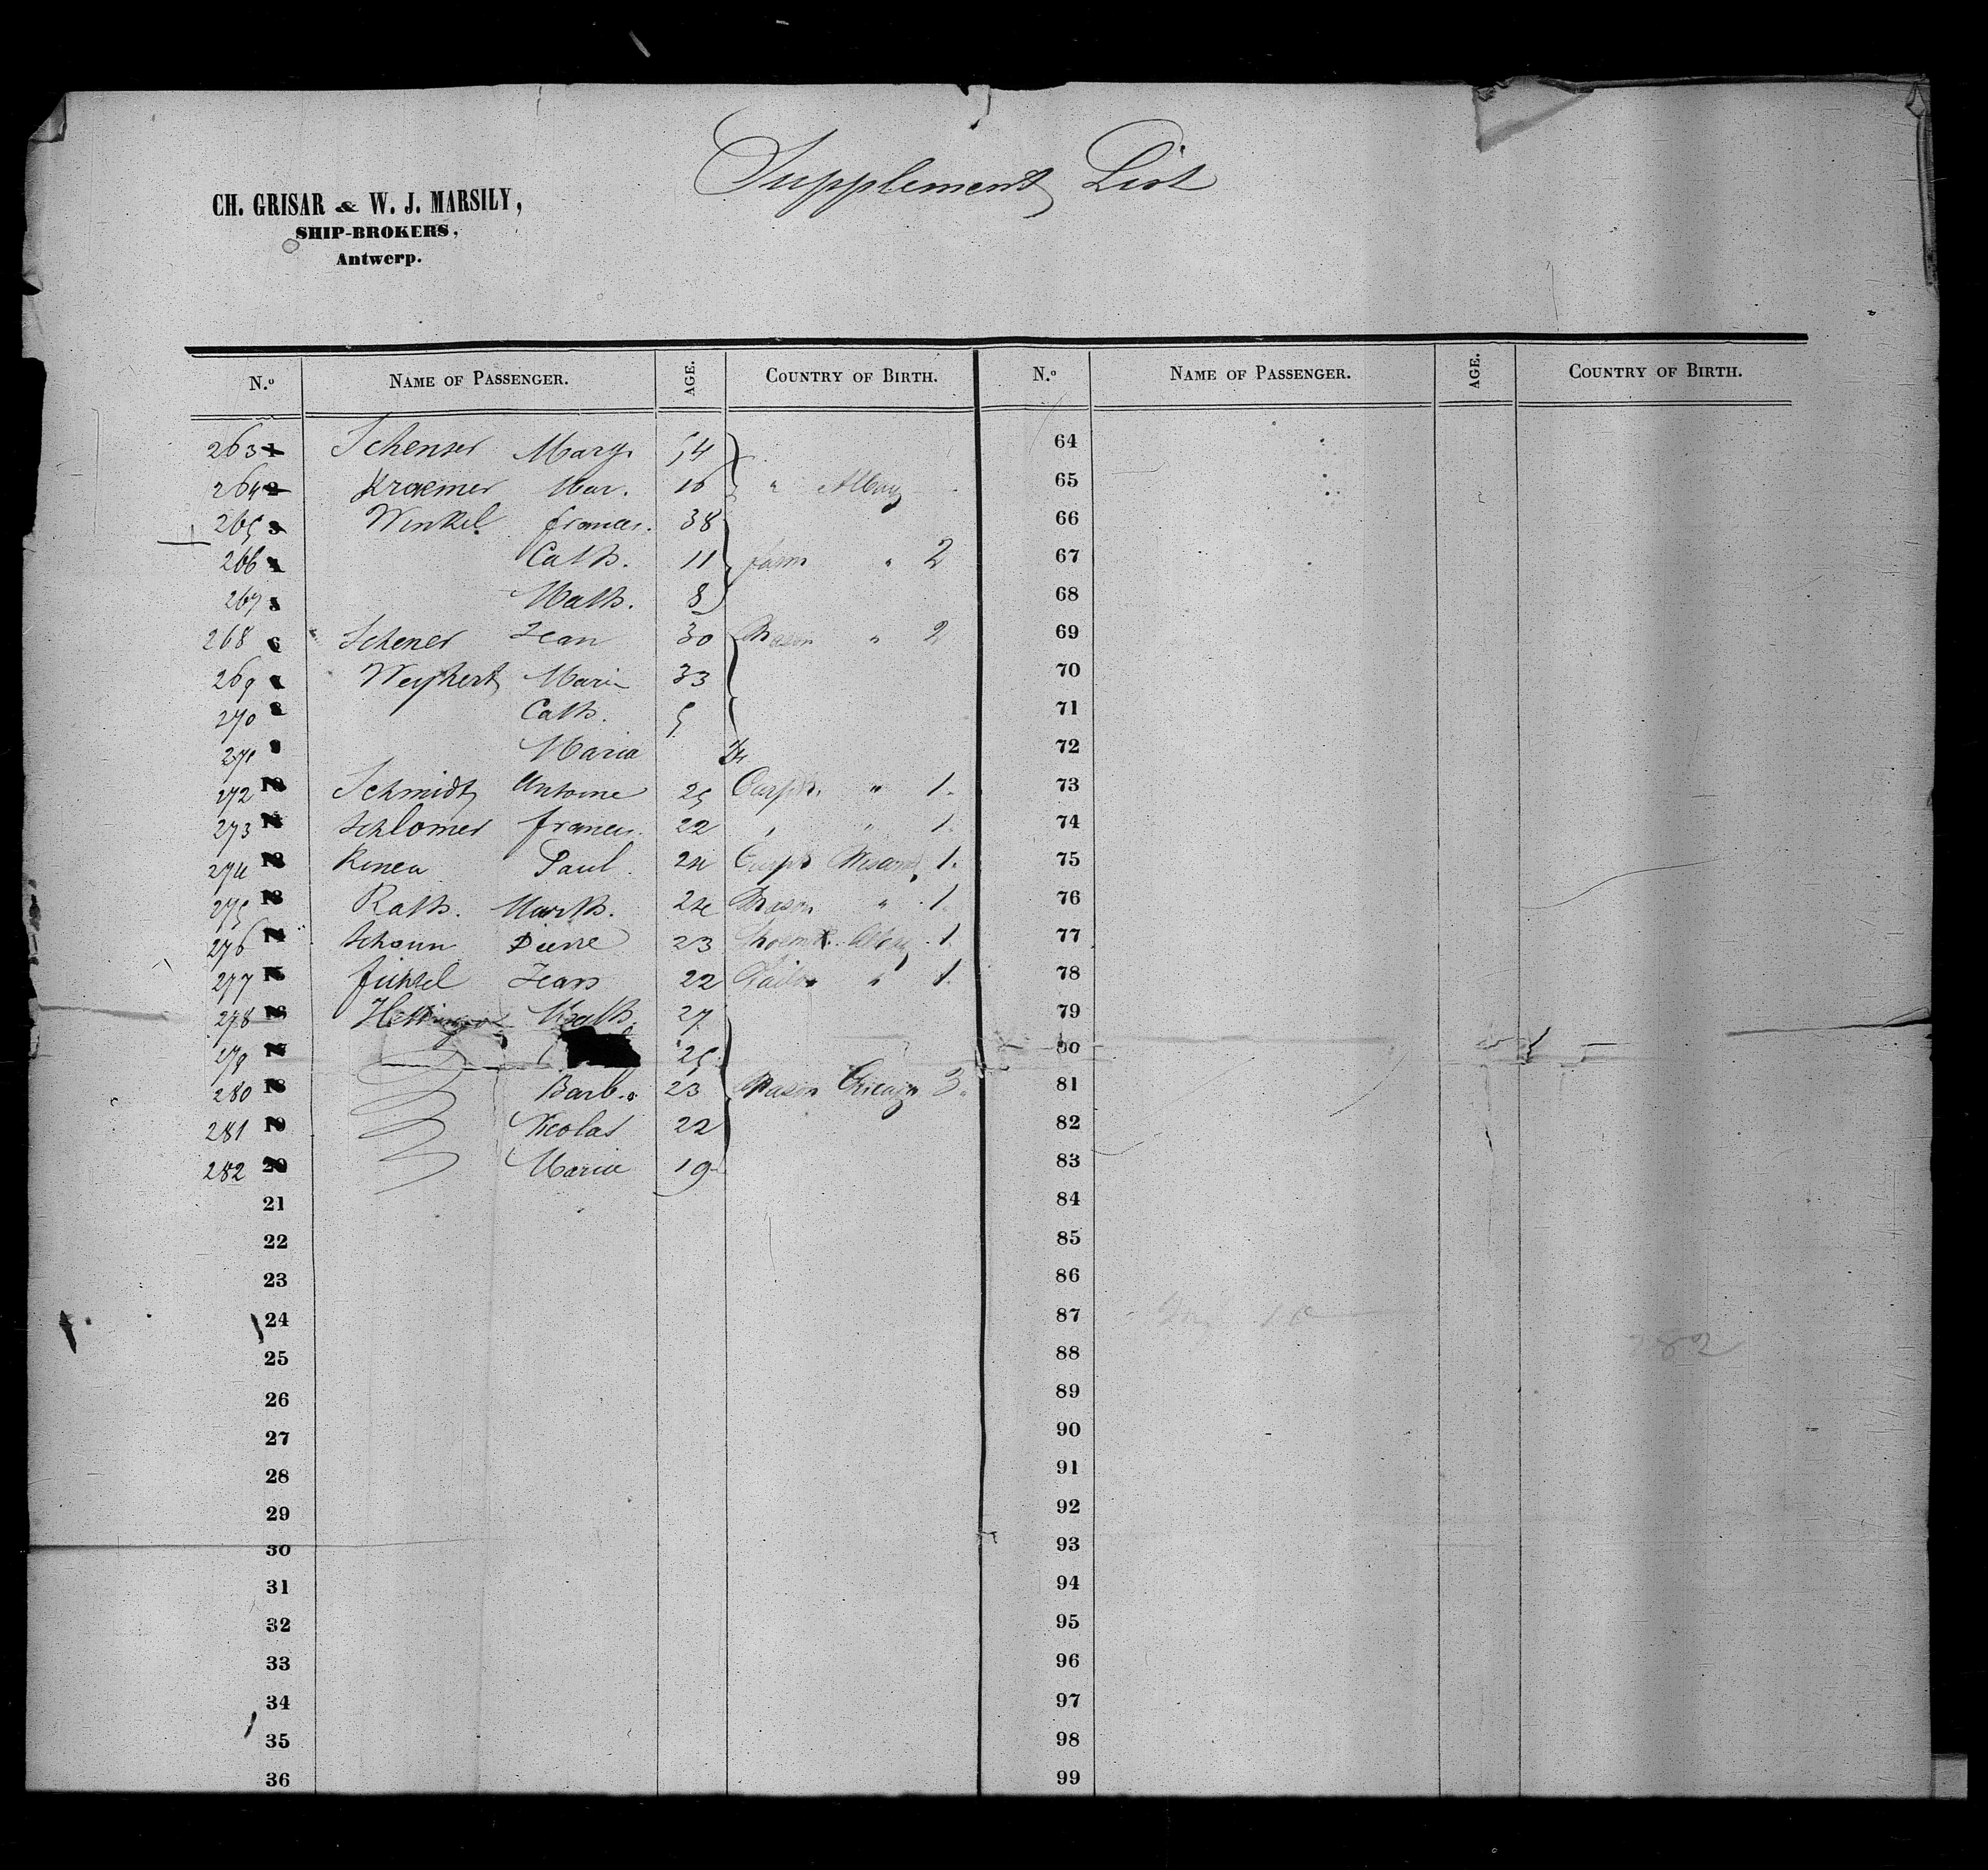 Supplement List
CH. GRISAR & W. J. MARSILY,
SHIP-BROKERS,
Antwerp.
N.º NAME OF PASSENGER. AGE. COUNTRY OF BIRTH. N.º NAME OF PASSENGER. AGE. COUNTRY OF BIRTH.
263 1 Mary 54 64
264 2 Kraemer Mar. 16 " Albany 65
265 3 Winkel frances. 38 66
266 4 Cath. 11 farm " 2 67
267 5 Math. 8 68
268 6 Schener Jean 30 Mason " 2 69
269 7 Maria 33 70
270 8 Cath. 5 71
271 9 Maria 72
272 10 Schmidt Antoine 25 Carpt. " 1. 73
273 11 Schlomer frances. 22 " " 1. 74
274 12 Paul. 24 Carpt 1. 75
275 13 Rath. Math. 24 Mason " 1. 76
276 14 Schaun Pierre 23 Shoemk. Albny 1. 77
277 15 Jean 22 Tailor " 1. 78
278 16 Math. 27 79
279 17 25 80
280 18 Barb. 23 Mason Chicago 3. 81
281 19 Nicolas 22 82
282 20 Maria 19 83
21 84
22 85
23 86
24 87
25 88
26 89
27 90
28 91
29 92
30 93
31 94
32 95
33 96
34 97
35 98
36 99